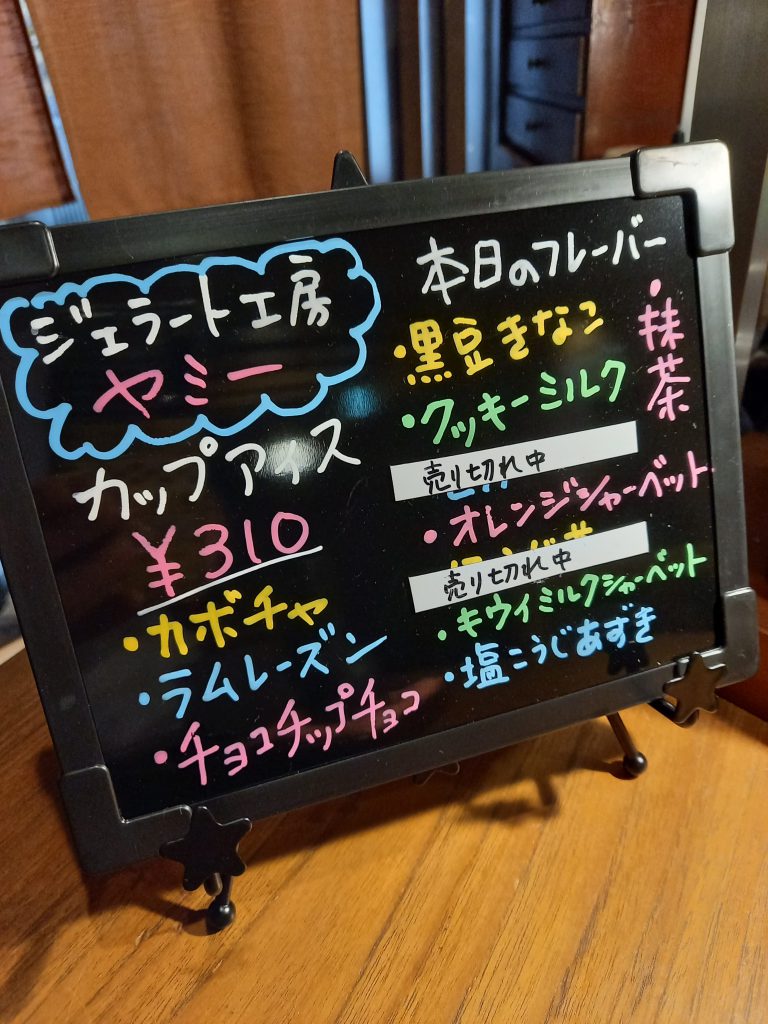 ジェラート工房
ヤミー
カップアイス
¥310
・カボチャ
・ラムレーズン
・チョコチップチョコ
本日のフレーバー
・黒豆きなこ
・クッキーミルク
売り切れ中
・オレンジシャーベット
売り切れ中
・キウイミルクシャーベット
・塩こうじあずき
・抹茶